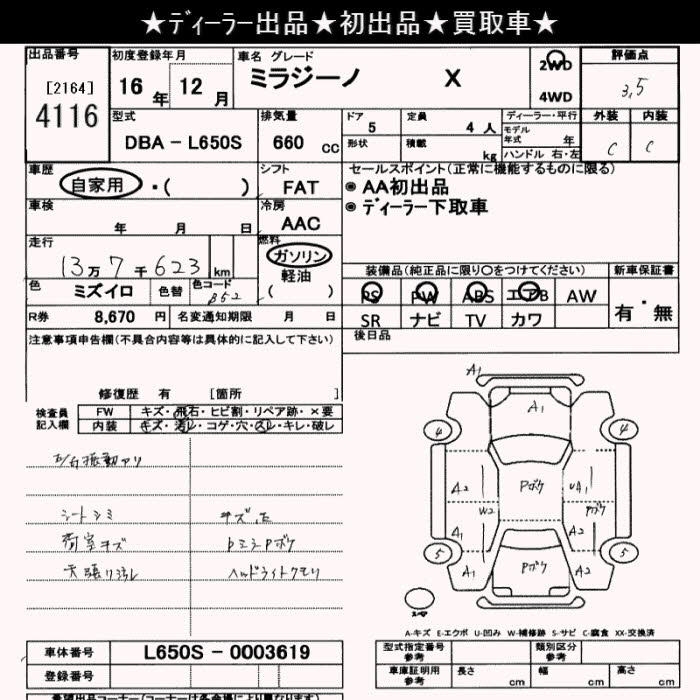 ★ディーラー出品★初出品★買取車★
出品番号 初度登録年月 車名 グレード 評価点
[2164] 4116 16 年 12 月 ミラジーノ X 2WD 4WD 3.5
型式 排気量 ドア 定員 ディーラー・平行 外装 内装
DBA － L650S 660 cc 5 4 人 モデル年式 年 C C
形状 積載 kg ハンドル 右・左
車歴 シフト セールスポイント(正常に機能するものに限る)
自家用 ・( ) FAT ◉ AA初出品
車検 冷房 ◉ ディーラー下取車
年 月 日 AAC
走行 燃料
13万7千623 km ガソリン
軽油
( )
装備品(純正品に限り〇をつけてください) 新車保証書
色 ミズイロ 色替 色コード B52
PS PW ABS エアB AW 有・無
R券 8,670 円 名変通知期限 月 日 SR ナビ TV カワ
注意事項申告欄(不具合内容等は具体的に記入して下さい) 後日品
修復歴 有 [箇所
検査員記入欄 FW キズ・飛石・ヒビ割・リペア跡・×要
内装 キズ・汚レ・コゲ・穴・スレ・キレ・破レ
シートシミ キズ.凹
荷室キズ Pミラ-Pボケ
天張り汚レ ヘッドライトクモリ
A1
A1
4 4
A2 W2 Pボケ UA1 Pボケ
A1 A2
5 5
A2 Pボケ A1
A-キズ E-エクボ U-凹み W-補修跡 S-サビ C-腐食 XX-交換済
車体番号 L650S － 0003619 型式指定番号 参考 類別区分 参考
登録番号 車庫証明用 参考 長さ cm 幅 cm 高さ cm